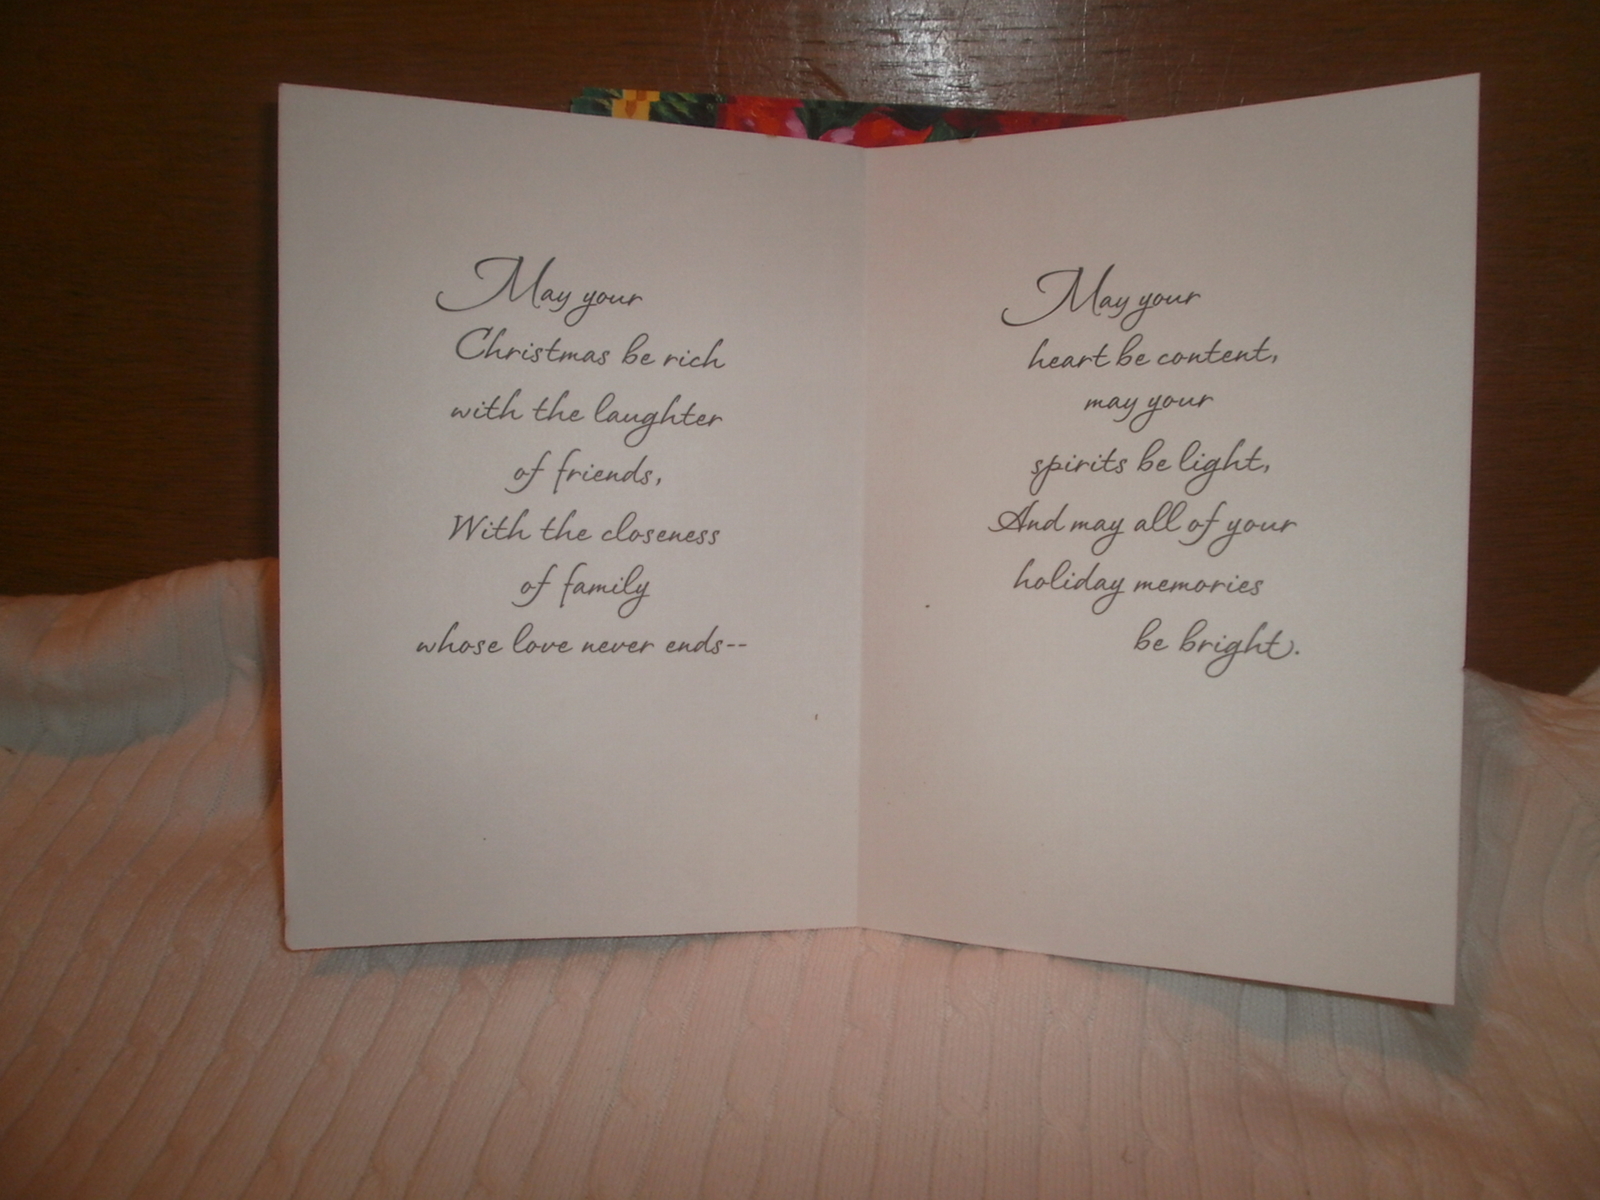 May your
Christmas be rich
with the laughter
of friends,
With the closeness
of family
whose love never ends--
May your
heart be content,
may your
spirits be light,
And may all of your
holiday memories
be bright.